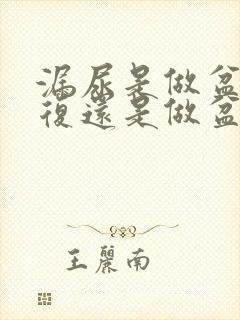 漏尿是做盆
復還是做盆
王麗南